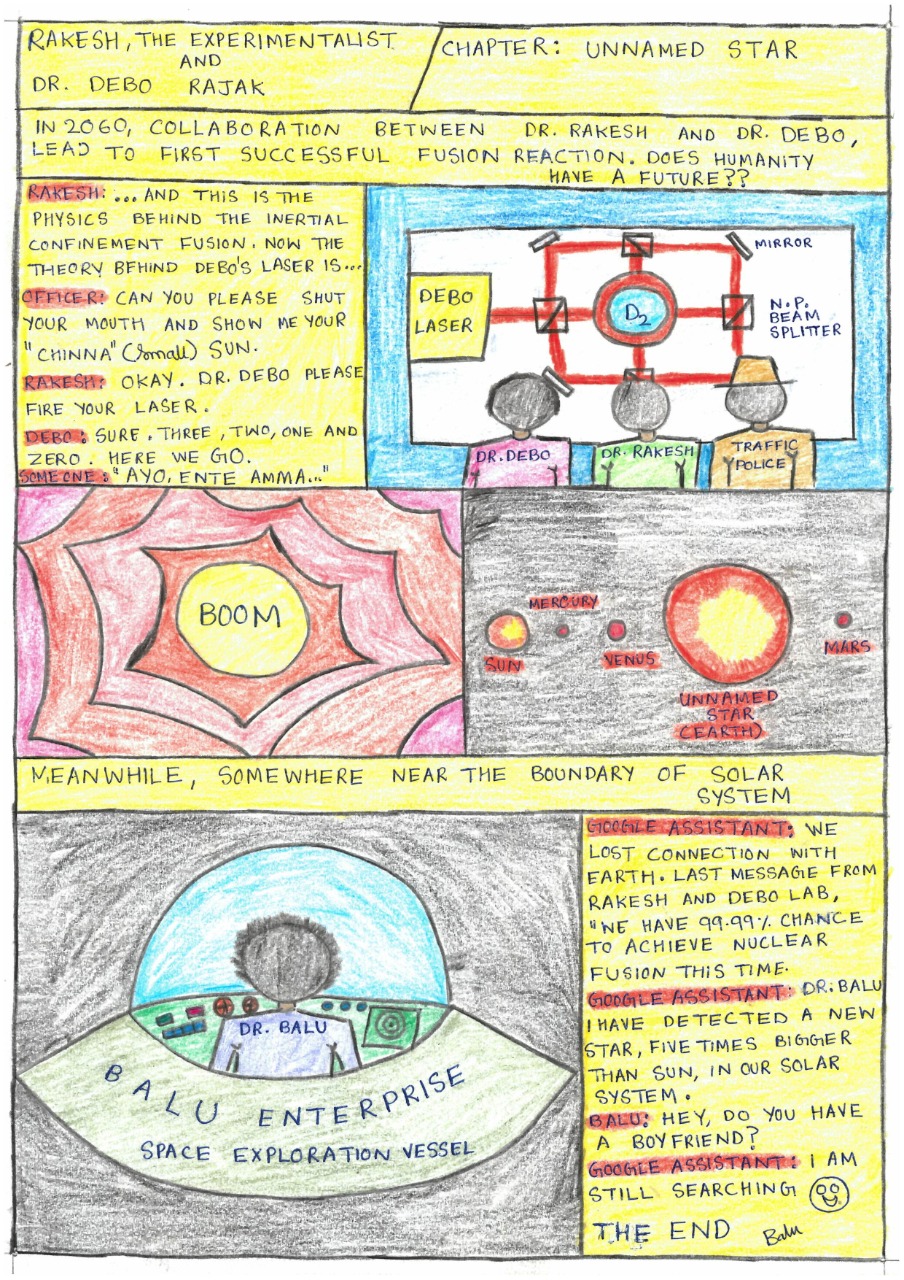 RAKESH, THE EXPERIMENTALIST
AND
DR. DEBO RAJAK
CHAPTER: UNNAMED STAR
IN 2060, COLLABORATION BETWEEN DR. RAKESH AND DR. DEBO,
LEAD TO FIRST SUCCESSFUL FUSION REACTION. DOES HUMANITY
HAVE A FUTURE??
RAKESH: ...AND THIS IS THE
PHYSICS BEHIND THE INERTIAL
CONFINEMENT FUSION. NOW THE
THEORY BEHIND DEBO'S LASER IS...
OFFICER: CAN YOU PLEASE SHUT
YOUR MOUTH AND SHOW ME YOUR
"CHINNA" (small) SUN.
RAKESH: OKAY. DR. DEBO PLEASE
FIRE YOUR LASER.
DEBO: SURE. THREE, TWO, ONE AND
ZERO. HERE WE GO.
SOMEONE: "AYO, ENTE AMMA..."
DEBO
LASER
D2
MIRROR
N.P.
BEAM
SPLITTER
DR. DEBO
DR. RAKESH
TRAFFIC
POLICE
BOOM
SUN
MERCURY
VENUS
UNNAMED
STAR
(EARTH)
MARS
MEANWHILE, SOMEWHERE NEAR THE BOUNDARY OF SOLAR
SYSTEM
DR. BALU
BALU ENTERPRISE
SPACE EXPLORATION VESSEL
GOOGLE ASSISTANT: WE
LOST CONNECTION WITH
EARTH. LAST MESSAGE FROM
RAKESH AND DEBO LAB,
"WE HAVE 99.99% CHANCE
TO ACHIEVE NUCLEAR
FUSION THIS TIME.
GOOGLE ASSISTANT: DR. BALU
I HAVE DETECTED A NEW
STAR, FIVE TIMES BIGGER
THAN SUN, IN OUR SOLAR
SYSTEM.
BALU: HEY, DO YOU HAVE
A BOYFRIEND?
GOOGLE ASSISTANT: I AM
STILL SEARCHING
THE END
Balu